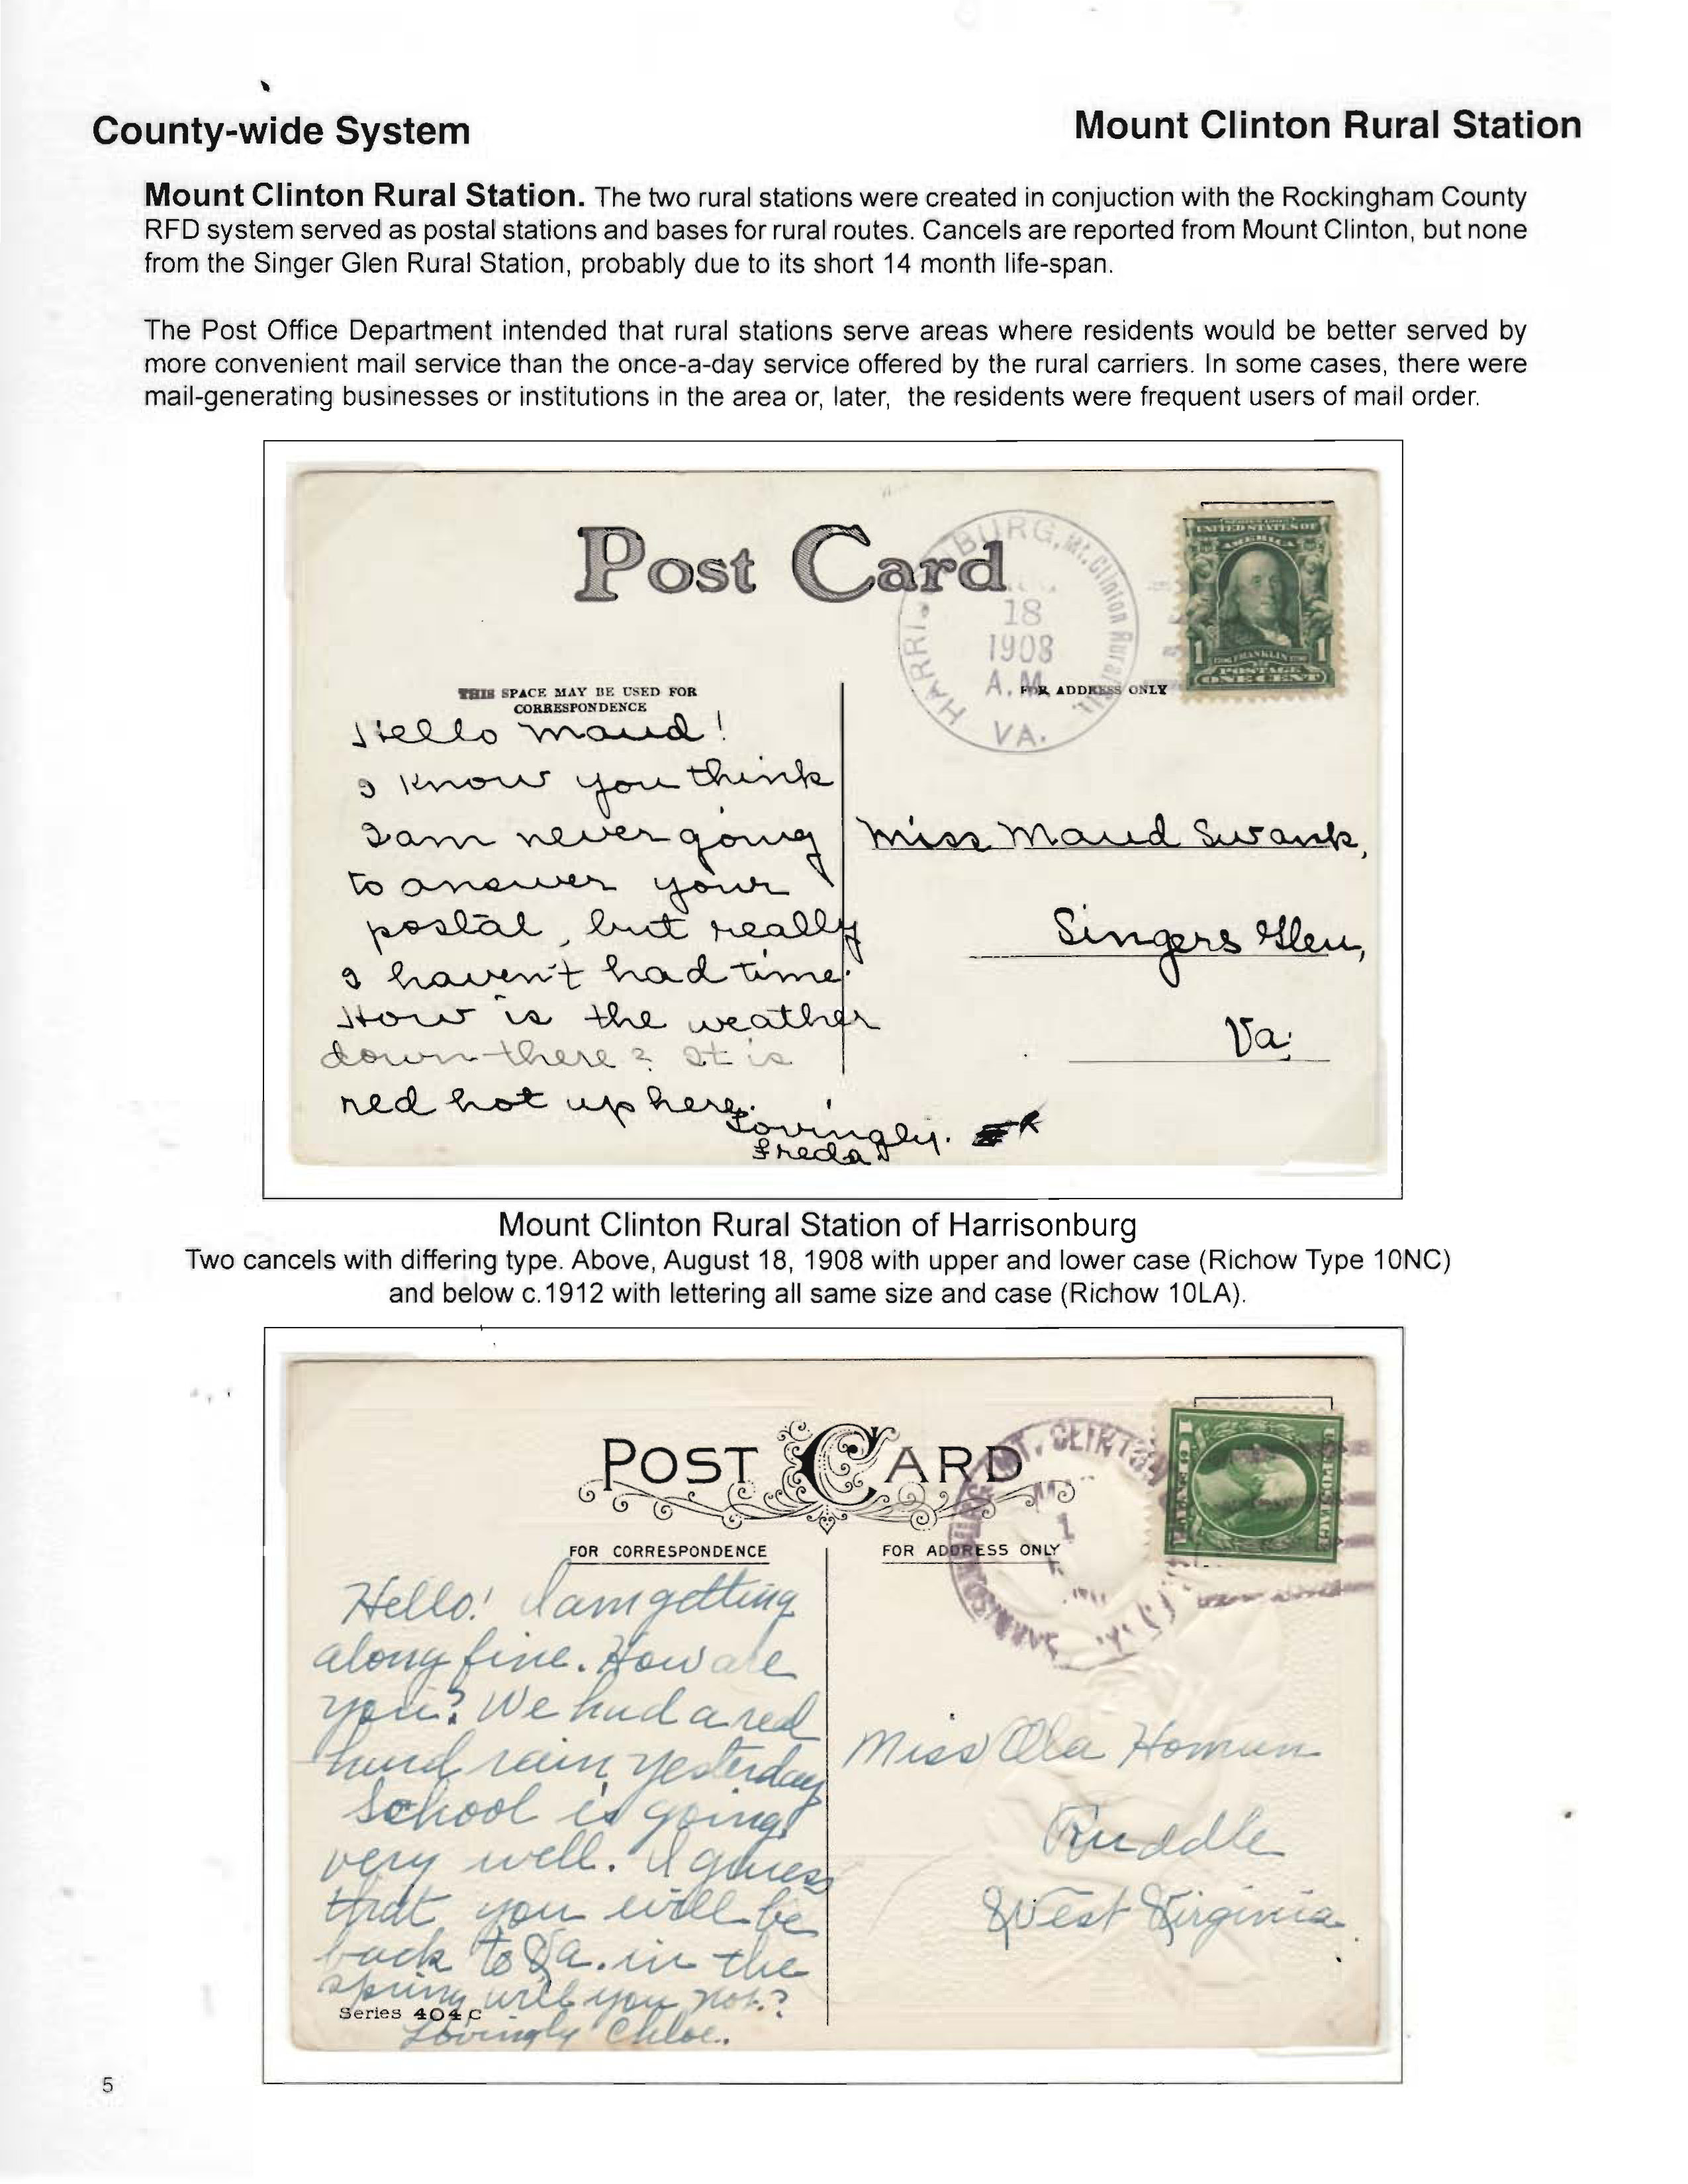 County-wide System
Mount Clinton Rural Station
Mount Clinton Rural Station. The two rural stations were created in conjuction with the Rockingham County
RFD system served as postal stations and bases for rural routes. Cancels are reported from Mount Clinton, but none
from the Singer Glen Rural Station, probably due to its short 14 month life-span.
The Post Office Department intended that rural stations serve areas where residents would be better served by
more convenient mail service than the once-a-day service offered by the rural carriers. In some cases, there were
mail-generating businesses or institutions in the area or, later, the residents were frequent users of mail order.
Post Card
BURG, Mt. Clinton Rural
18
1908
A.M.
VA.
UNITED STATES OF
AMERICA
1 FRANKLIN 1
POSTAGE
ONE CENT
THIS SPACE MAY BE USED FOR
CORRESPONDENCE
FOR ADDRESS ONLY
Hello Maud!
I know you think
I am never going
to answer your
postal, but really
I haven't had time.
How is the weather
down there? It is
red hot up here.
Lovingly.
Freda
Miss Maud Swank,
Singers Glen,
Va.
Mount Clinton Rural Station of Harrisonburg
Two cancels with differing type. Above, August 18, 1908 with upper and lower case (Richow Type 10NC)
and below c.1912 with lettering all same size and case (Richow 10LA).
POST CARD
MT. CLINTON
1
FOR CORRESPONDENCE
FOR ADDRESS ONLY
Hello! I am getting
along fine. How are
you? We had a red
hard rain yesterday
School is going
very well. I guess
that you will be
back to Va. in the
spring will you not?
Series 404 C
Lovingly Chloe.
Miss Ola Homan
Ruddle
West Virginia
5